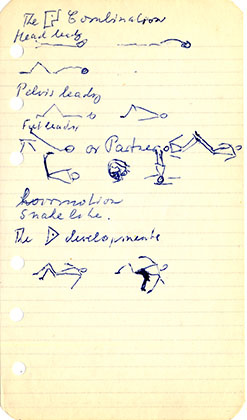 The Combination
Head leads
Pelvis leads
Feet leads
or Partner
Snake like.
The developments